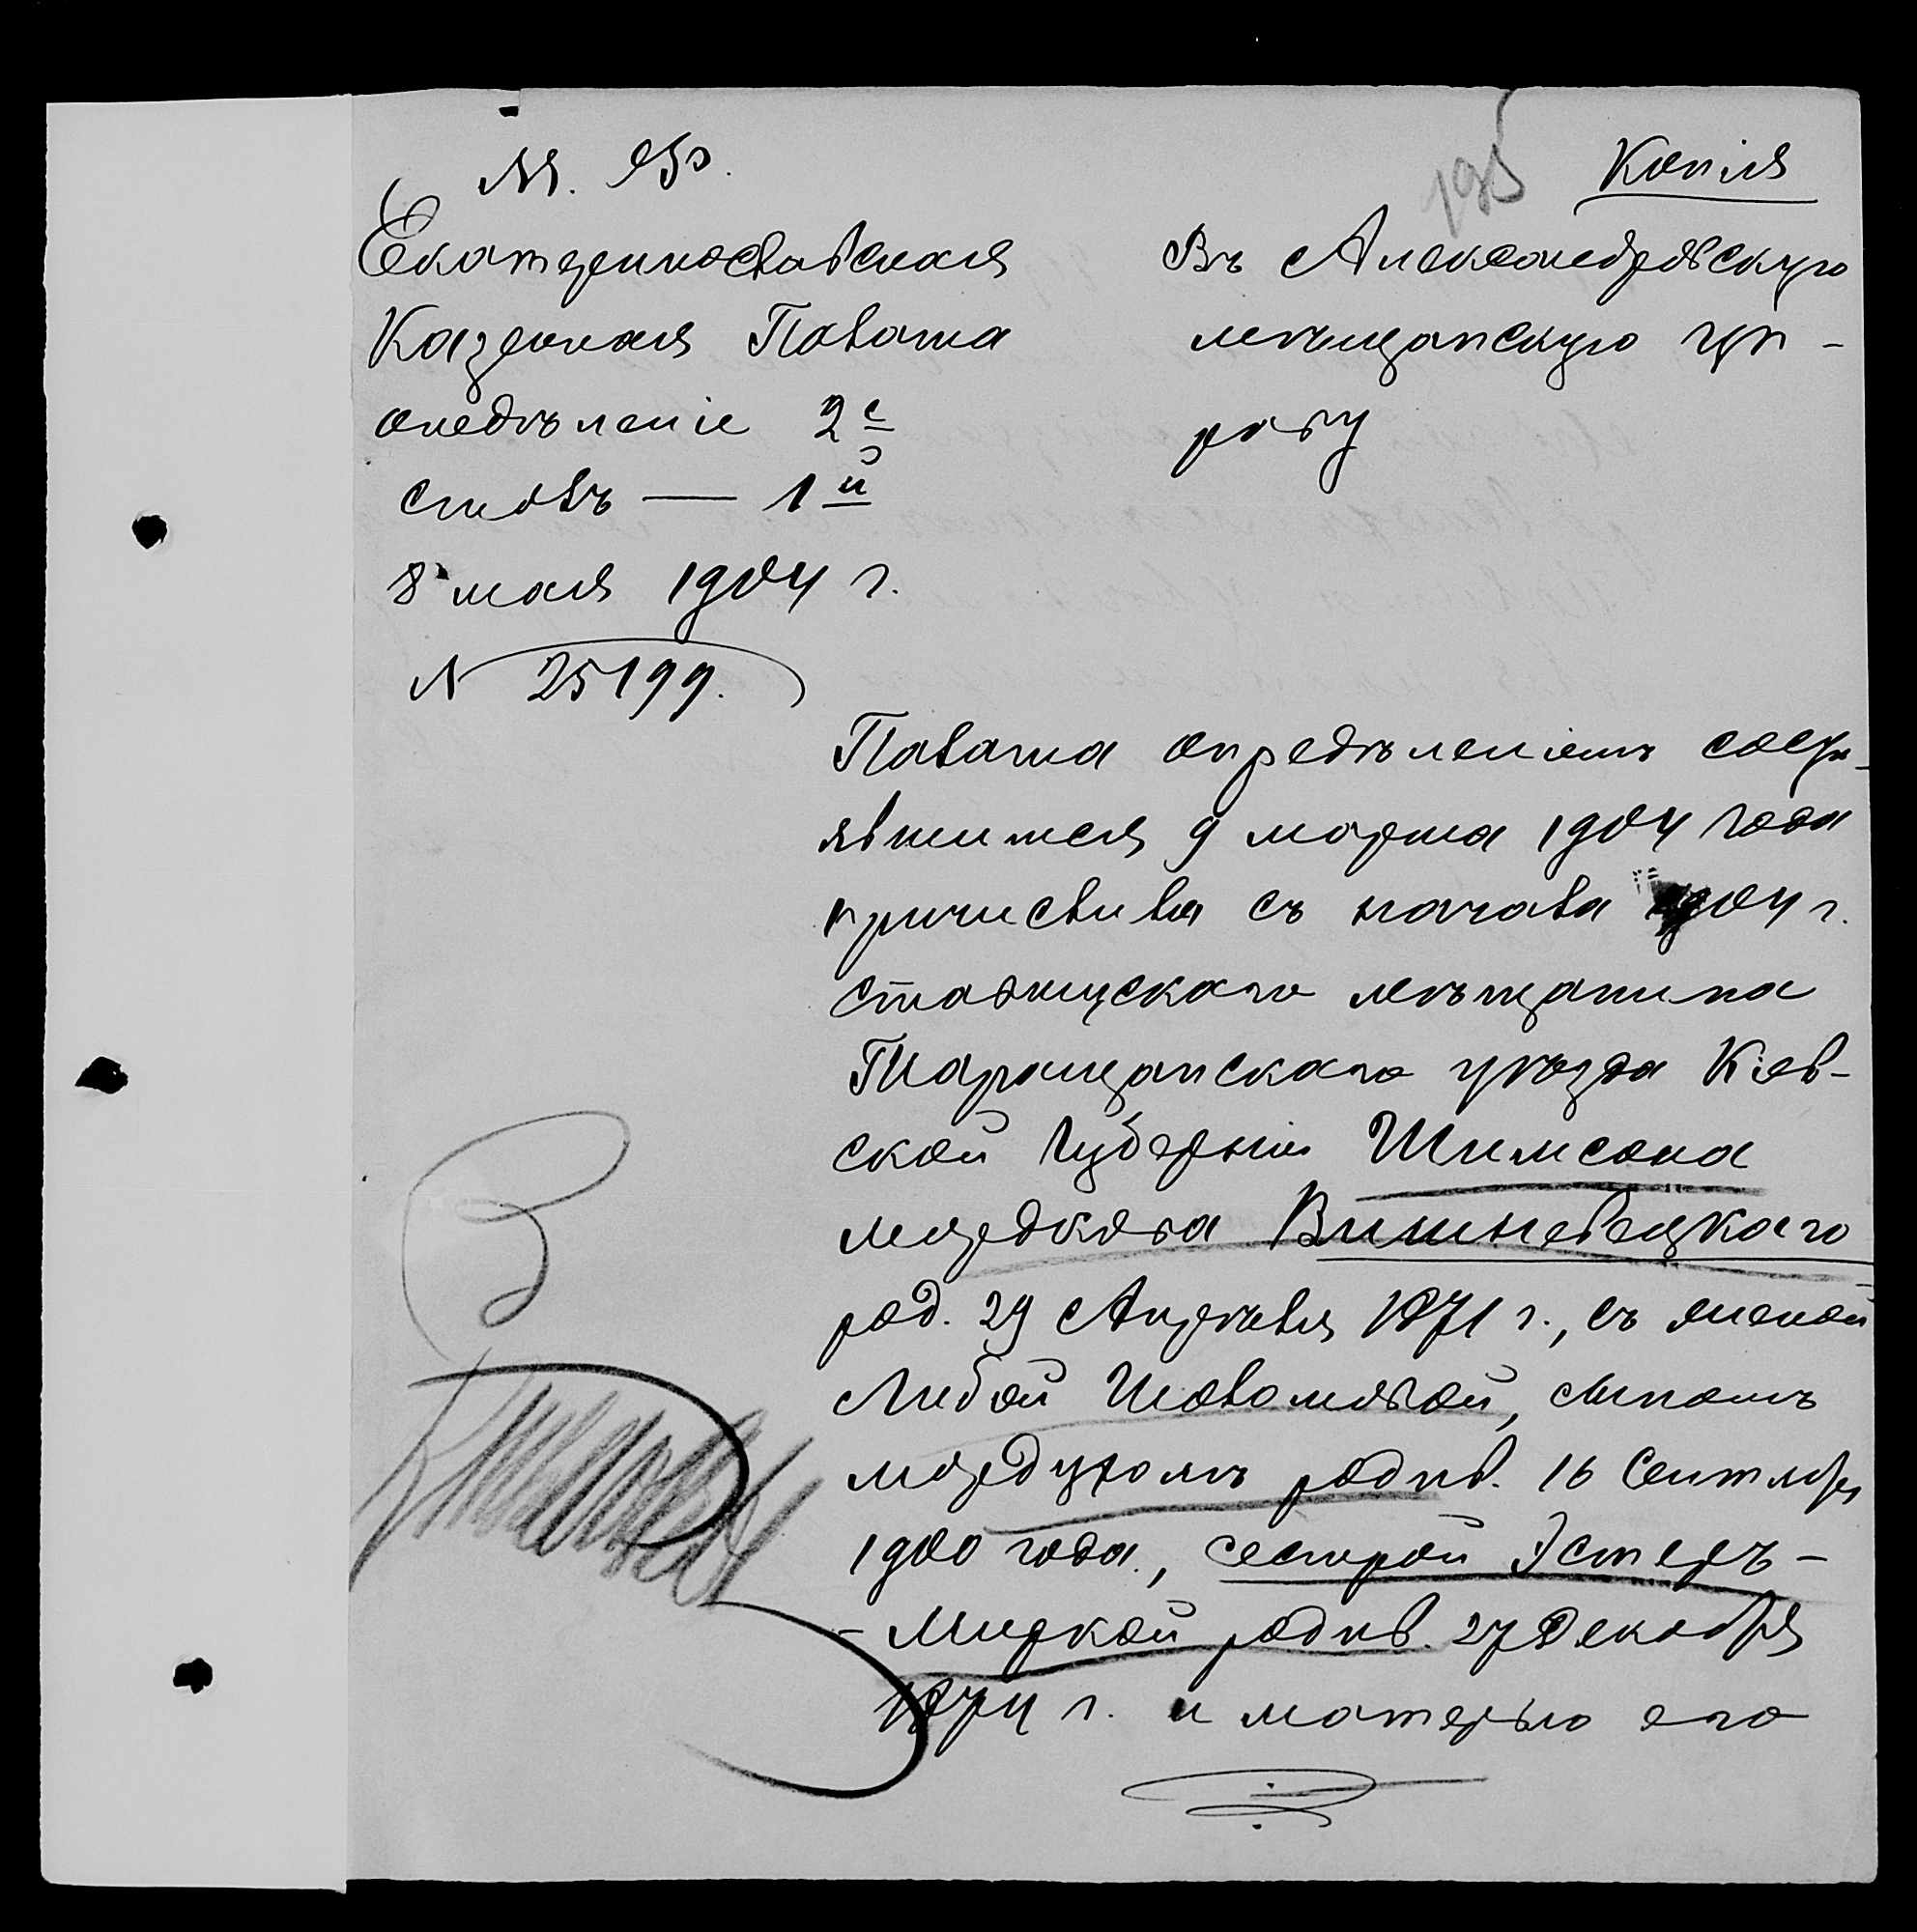 М. Ф.
195
Копія
Екатеринославская
Казенная Палата
отдѣленіе 2е
столъ — 1й
8 мая 1904 г.
N 25199.
Въ Александровскую
мѣщанскую уп-
раву
Палата опредѣленіемъ состо-
явшимся 9 марта 1904 года
причислила съ начала 1904 г.
ставищскаго мѣщанина
Таращанскаго уѣзда Кіев-
ской губерніи Шимсона
Мордкова Вишневецкаго
род. 29 Апрѣля 1871 г., съ женой
Либой Шоломовой, сыномъ
родив. 16 Сентября
1900 года, сестрой Эстеръ-
-Миркой родив. 27 Декабря
1874 г. и матерью его